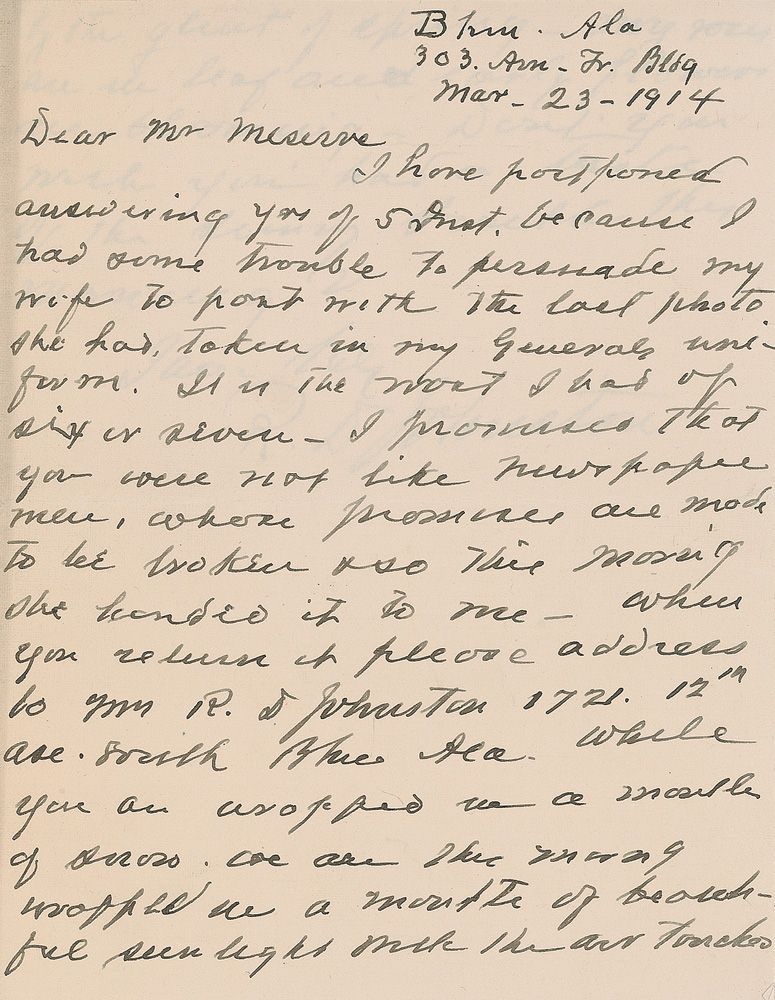 Bhm. Ala
303. Avn-Tr. Bldg
Mar-23-1914
Dear Mr Meserve
I have postponed
answering yrs of 5 Inst. because I
had some trouble to persuade my
wife to part with the last photo
she had, taken in my Generals uni-
form. It is the last I had of
six or seven - I promised that
you were not like newspaper
men, whose promises are made
to be broken & so this morning
she handed it to me - when
you return it please address
to Mrs R. D Johnston 1721. 12th
ave. South Bhm Ala. While
you are wrapped in a mantle
of snow. we are this morning
wrapped in a mantle of beauti-
ful sunlight with the air touched